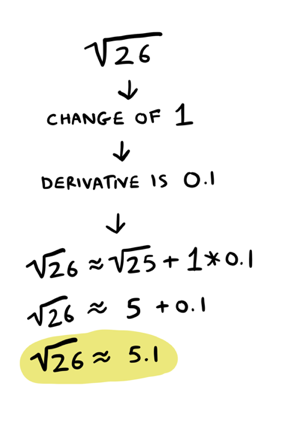 √26
↓
CHANGE OF 1
↓
DERIVATIVE IS 0.1
↓
√26 ≈ √25 + 1*0.1
√26 ≈ 5 + 0.1
√26 ≈ 5.1